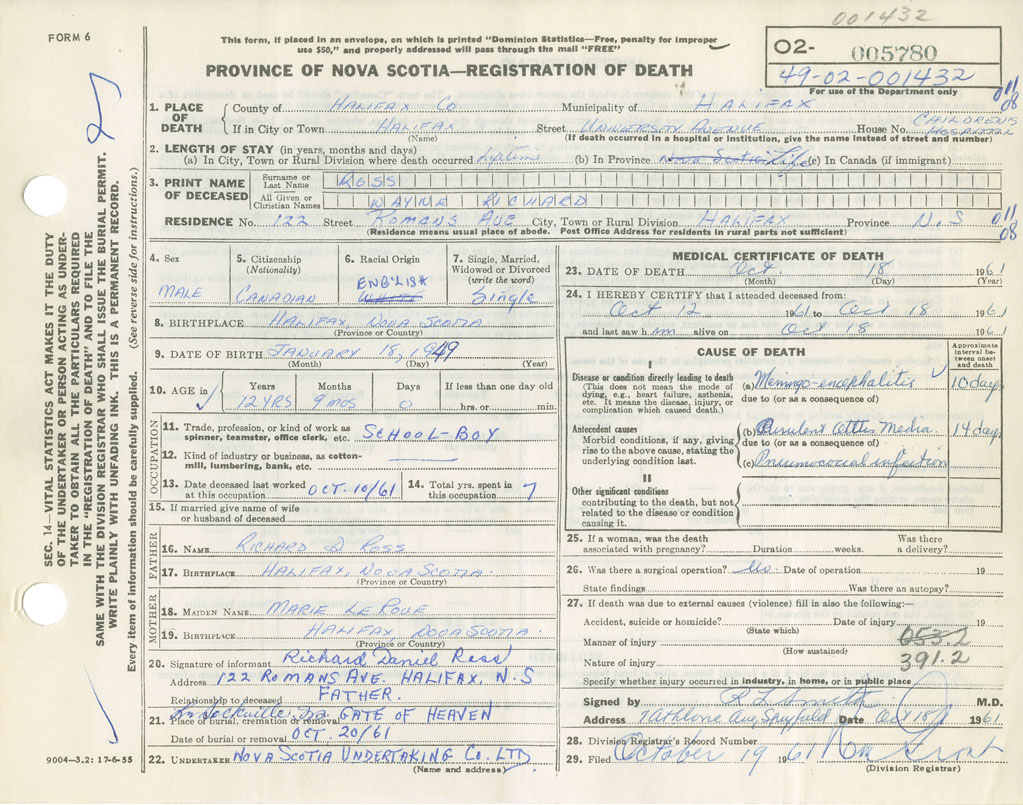 001432
FORM 6
This form, if placed in an envelope, on which is printed "Dominion Statistics—Free, penalty for improper
use $50," and properly addressed will pass through the mail "FREE"
02- 005780
49-02-001432
For use of the Department only
PROVINCE OF NOVA SCOTIA—REGISTRATION OF DEATH
011
08
1. PLACE OF DEATH County of HALIFAX Co. Municipality of HALIFAX
If in City or Town HALIFAX Street UNIVERSITY AVENUE House No. CHILDREN'S HOSPITAL
(Name) (If death occurred in a hospital or institution, give the name instead of street and number)
2. LENGTH OF STAY (in years, months and days)
(a) In City, Town or Rural Division where death occurred Lifetime (b) In Province Nova Scotia Life (c) In Canada (if immigrant)
3. PRINT NAME OF DECEASED Surname or Last Name ROSS
All Given or Christian Names WAYNE RICHARD
RESIDENCE No. 122 Street ROMANS AVE City, Town or Rural Division HALIFAX Province N.S
011
08
(Residence means usual place of abode. Post Office Address for residents in rural parts not sufficient)
4. Sex 5. Citizenship (Nationality) 6. Racial Origin 7. Single, Married, Widowed or Divorced (write the word)
MALE CANADIAN ENGLISH WHITE Single
8. BIRTHPLACE HALIFAX, NOVA SCOTIA
(Province or Country)
9. DATE OF BIRTH JANUARY 18, 1949
(Month) (Day) (Year)
10. AGE in Years Months Days If less than one day old
12 YRS 9 MOS 0 hrs. or min.
OCCUPATION
11. Trade, profession, or kind of work as spinner, teamster, office clerk, etc. SCHOOL-BOY
12. Kind of industry or business, as cotton-mill, lumbering, bank, etc.
13. Date deceased last worked at this occupation OCT. 10/61 14. Total yrs. spent in this occupation 7
15. If married give name of wife
or husband of deceased
FATHER
16. NAME RICHARD D ROSS
17. BIRTHPLACE HALIFAX, NOVA SCOTIA.
(Province or Country)
MOTHER
18. MAIDEN NAME MARIE LEROUE
19. BIRTHPLACE HALIFAX, NOVA SCOTIA.
(Province or Country)
20. Signature of informant Richard Daniel Ross
Address 122 ROMANS AVE. HALIFAX, N.S
Relationship to deceased FATHER.
21. Place of burial, cremation or removal GATE OF HEAVEN
Date of burial or removal OCT. 20/61
22. UNDERTAKER NOVA SCOTIA UNDERTAKING Co. LTD
(Name and address)
MEDICAL CERTIFICATE OF DEATH
23. DATE OF DEATH Oct 18 1961
(Month) (Day) (Year)
24. I HEREBY CERTIFY that I attended deceased from:
Oct 12 1961 to Oct 18 1961
and last saw him alive on Oct 18 1961
CAUSE OF DEATH
Approximate interval between onset and death
I
Disease or condition directly leading to death
(This does not mean the mode of dying, e.g., heart failure, asthenia, etc. It means the disease, injury, or complication which caused death.)
(a) Meningo-encephalitis 10 days
due to (or as a consequence of)
Antecedent causes
Morbid conditions, if any, giving rise to the above cause, stating the underlying condition last.
(b) Purulent Otitis Media. 14 days
due to (or as a consequence of)
(c) Pneumococcal infection
II
Other significant conditions
contributing to the death, but not related to the disease or condition causing it.
25. If a woman, was the death associated with pregnancy? Duration weeks. Was there a delivery?
26. Was there a surgical operation? No. Date of operation 19
State findings Was there an autopsy?
27. If death was due to external causes (violence) fill in also the following:—
Accident, suicide or homicide? Date of injury 19
(State which)
Manner of injury 053.2
(How sustained)
Nature of injury 391.2
Specify whether injury occurred in industry, in home, or in public place
Signed by R L Smith M.D.
Address 7 Athlone Ave, Spryfield Date Oct 18/ 1961
28. Division Registrar's Record Number
29. Filed October 19 1961
(Division Registrar)
SEC. 14—VITAL STATISTICS ACT MAKES IT THE DUTY
OF THE UNDERTAKER OR PERSON ACTING AS UNDER-
TAKER TO OBTAIN ALL THE PARTICULARS REQUIRED
IN THE "REGISTRATION OF DEATH" AND TO FILE THE
SAME WITH THE DIVISION REGISTRAR WHO SHALL ISSUE THE BURIAL PERMIT.
WRITE PLAINLY WITH UNFADING INK. THIS IS A PERMANENT RECORD.
Every item of information should be carefully supplied. (See reverse side for instructions.)
9004—3.2: 17-6-55